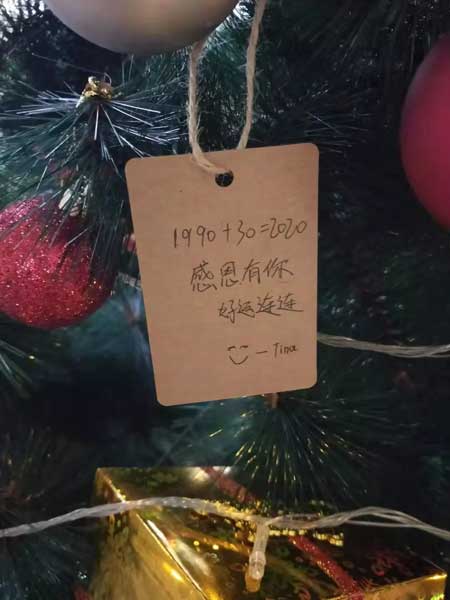 1990+30=2020
感恩有你
好运连连
— Tina